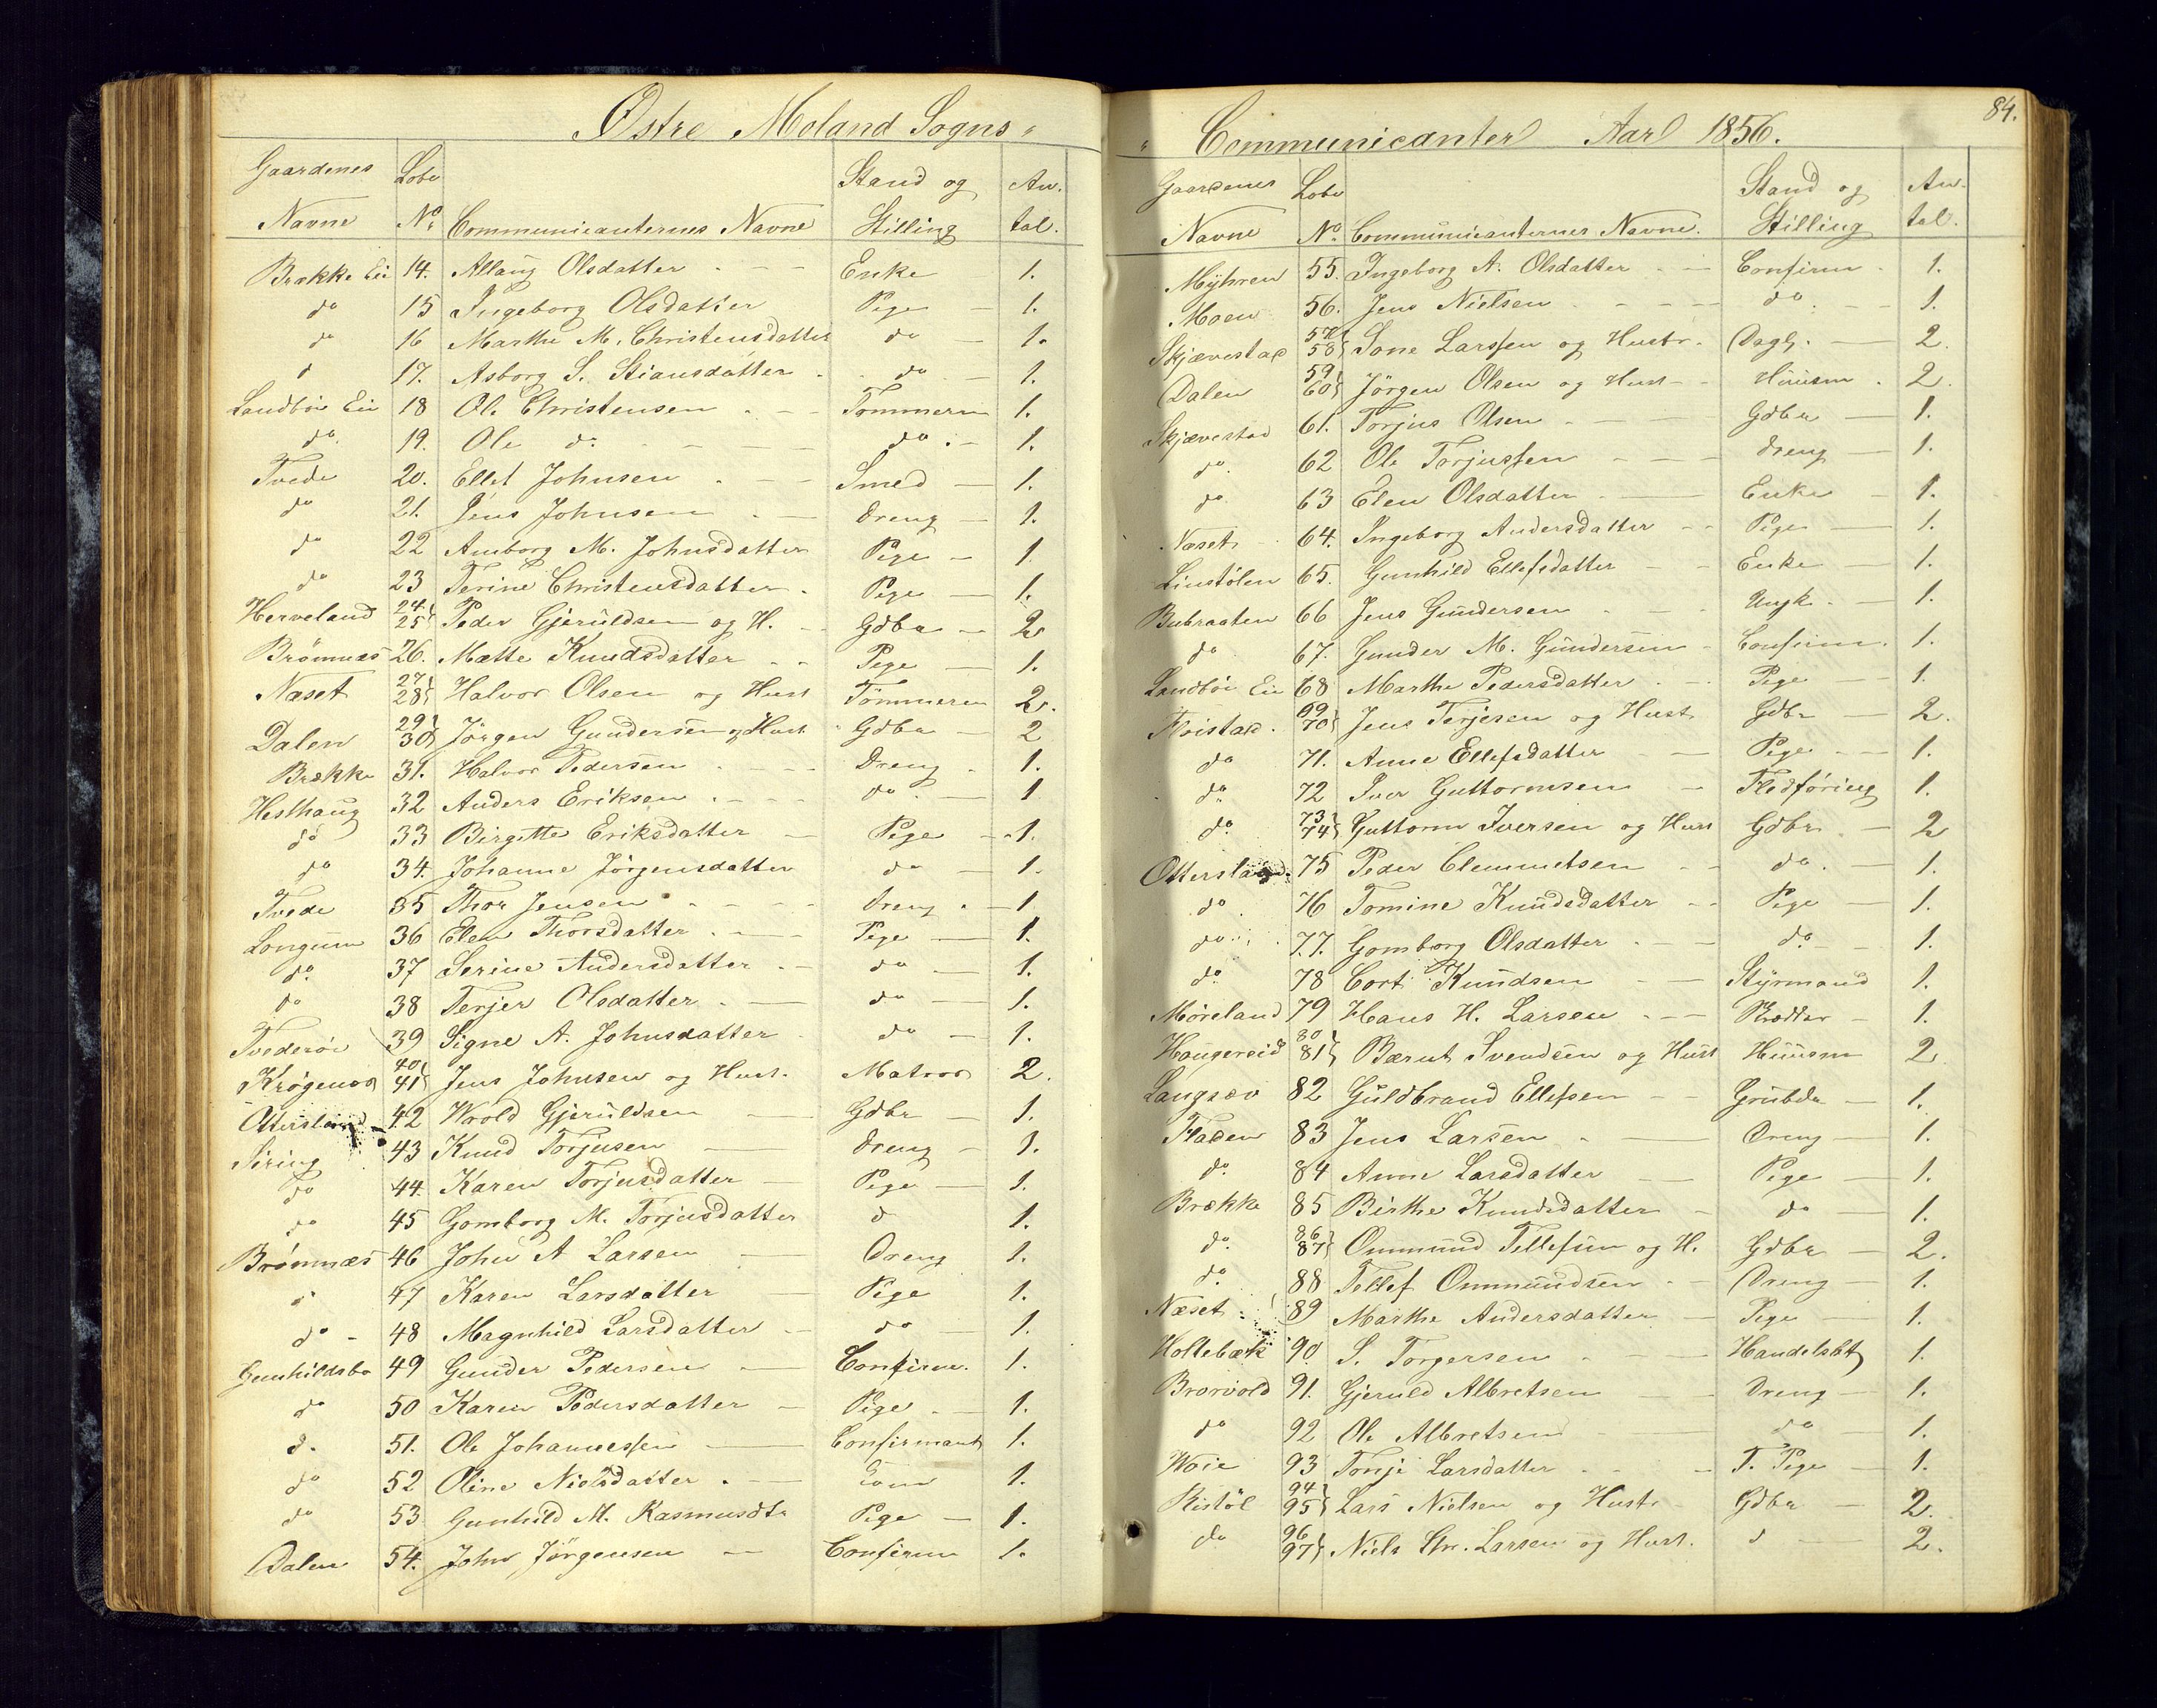 Østre Moland Sogns "
Gaardenes Løbe Stand og An-
Navne No. Communicanternes Navne Stilling tal.
Brække Eie 14. Allaug Olsdatter Enke 1.
do 15 Ingeborg Olsdatter Pige 1.
do 16 Marthe M. Christensdatter do 1.
d 17. Asborg S. Stiansdatter do 1.
Landbøe Eie 18 Ole Christensen Tømmerm 1.
do. 19. Ole do. do. 1.
Tvede 20. Ellef Johnsen Smed 1.
do 21. Jens Johnsen Dreng 1.
do 22 Amborg M. Johnsdatter Pige 1
do 23 Terine Christensdatter Pige 1.
Herveland 24. 25 Peder Gjeruldsen og H. Gdbr 2
Brømnæs 26. Mætte Knudsdatter Pige 1.
Næset 27 28 Halvor Olsen og Hust Tømmerm 2.
Dalen 29 30 Jørgen Gundersen og Hust Gdbr 2
Brække 31. Halvor Pedersen Dreng 1.
Hesthaug 32 Anders Eriksen do. 1
do 33 Birgitte Eriksdatter Pige 1.
do 34. Johanne Jörgensdatter do 1.
Tvede 35 Thor Jensen Dreng 1
Longum 36 Elen Thorsdatter Pige 1.
do. 37 Serine Andersdatter do 1.
do 38 Terjer Olsdatter do 1.
Tvederøie 39 Signe A. Johnsdatter do 1.
Krøgenes 40 41 Jens Johnsen og Hust. Matros 2.
Ottersland 42 Wrold Gjeruldsen Gdbr 1.
Siring 43 Knud Torjusen Dreng 1.
do 44. Karen Torjusdatter Pige 1.
do 45 Gomborg M. Torjusdatter d 1.
Brømnæs 46 John A Larsen Dreng 1.
d 47 Karen Larsdatter Pige 1.
do 48 Magnhild Larsdatter do 1.
Gunhildsbo 49 Gunder Pedersen Confirm. 1.
do 50 Karen Pedersdatter Pige 1.
d. 51. Ole Johannessen Confirmant 1.
do 52 Oline Nielsdatter 1.
do 53 Gunhild M. Rasmusdtr Pige 1.
Dalen 54. John Jörgensen Confirm 1.
84.
" Communicanter Aar 1856.
Gaardenes Løbe Stand og An-
Navne No. Communicanternes Navne. Stilling tal.
Myhren 55. Ingeborg A. Olsdatter Confirm 1.
Moen 56. Jens Nielsen do. 1.
Skjævestad 57 58 Sone Larssen og Hustr. Dagl. 2.
Dalen 59 60 Jörgen Olsen og Hust Huusm 2.
Skjævestad 61. Torjus Olsen Gdbr 1.
do. 62 Ole Torjussen Dreng 1.
do 63 Elen Olsdatter Enke 1.
Næset 64. Ingeborg Andersdatter Pige 1.
Linstølen 65. Gunhild Ellefsdatter Enke 1.
Bubraaten 66 Jens Gundersen Ungk. 1.
do 67. Gunder M. Gundersen Confirm. 1.
Landbøe Eie 68 Marthe Pedersdatter Pige 1.
Floistad. 69 70 Jens Terjesen og Hust Gdbr 2.
do 71. Anne Ellefsdatter Pige 1.
do. 72 Iver Guttormsen Flodføring 1.
do. 73 74 Guttorm Iversen og Hust Gdbr. 2
Ottersland 75 Peder Clemmetsen do. 1.
do 76 Tomine Knudsdatter Pige 1.
do 77. Gomborg Olsdatter do. 1.
do. 78 Cort Knudsen Styrmand 1.
Møreland 79 Hans H. Larsen 1.
Haugereid 80 81 Bærnt Svendsen og Hust Huusm 2
Langsæv 82 Guldbrand Ellefsen Grubeda 1.
Fladen 83 Jens Larsen Dreng 1.
do. 84 Anne Larsdatter Pige 1.
Brække 85 Birthe Knudsdatter do 1.
do. 86 87 Ommund Tellefsen og H. Gdbr 2.
do. 88 Tellef Ommundsen Dreng 1.
Næset 89 Marthe Andersdatter Pige 1.
Holtebæk 90 S. Torgersen Handelsbt 1.
Brorvold 91. Gjeruld Albretsen Dreng 1.
do 92 Ole Albretsen do 1.
Woie 93 Tonje Larsdatter T. Pige 1.
Ristøl 94 95 Lars Nielsen og Hustr Gdbr 2.
do 96 97 Niels Chr. Larsen og Hust. d 2.